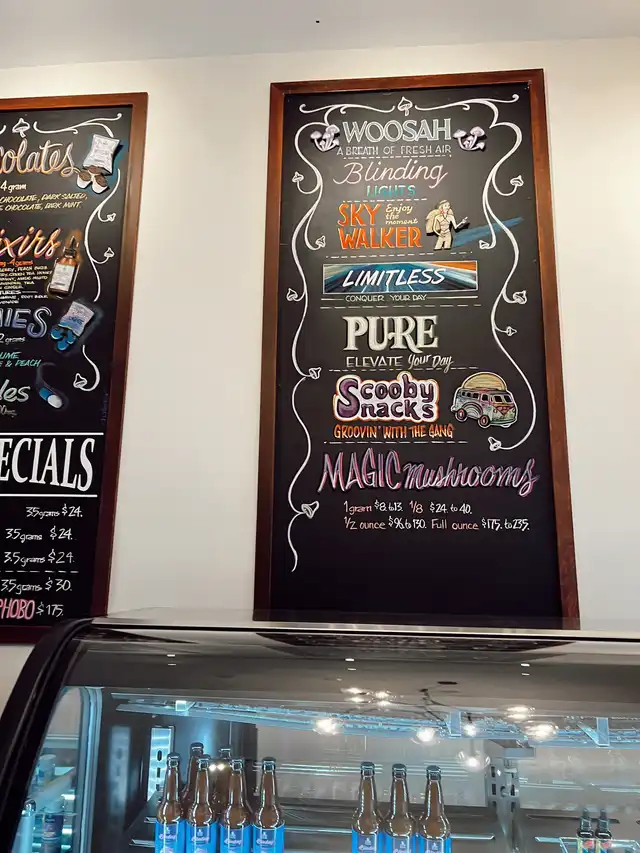 colates
4 gram
CHOCOLATE, DARK SALTED,
CHOCOLATE, DARK MINT.
ixirs
IES
2 grams
LIME
& PEACH
les
ECIALS
3.5 grams $24.
3.5 grams $24.
3.5 grams $24.
3.5 grams $30.
PHOBO $175.
WOOSAH
A BREATH OF FRESH AIR
Blinding
LIGHTS
SKY
WALKER
Enjoy
the
moment
LIMITLESS
CONQUER YOUR DAY
PURE
ELEVATE your Day
Scooby
Snacks
GROOVIN' WITH THE GANG
MAGIC mushrooms
1 gram $8. to 13. 1/8 $24. to 40.
1/2 ounce $96. to 130. Full ounce $175. to 235.